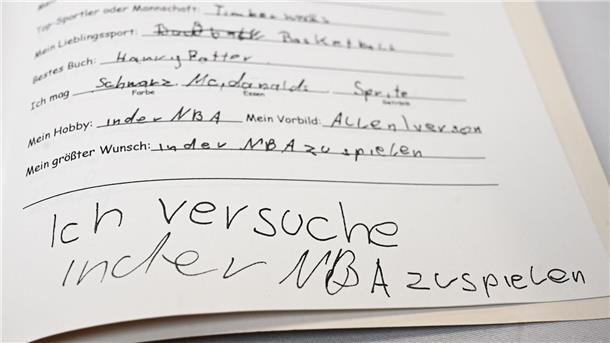 Top-Sportler oder Mannschaft: Timberwolfs
Mein Lieblingssport: Basketball
Bestes Buch: Harry Potter
Ich mag Schwarz Mc,donalds Sprite
Farbe Essen Getränk
Mein Hobby: inder NBA Mein Vorbild: Allen Iverson
Mein größter Wunsch: in der NBA zu spielen
Ich versuche
inder NBA zuspielen